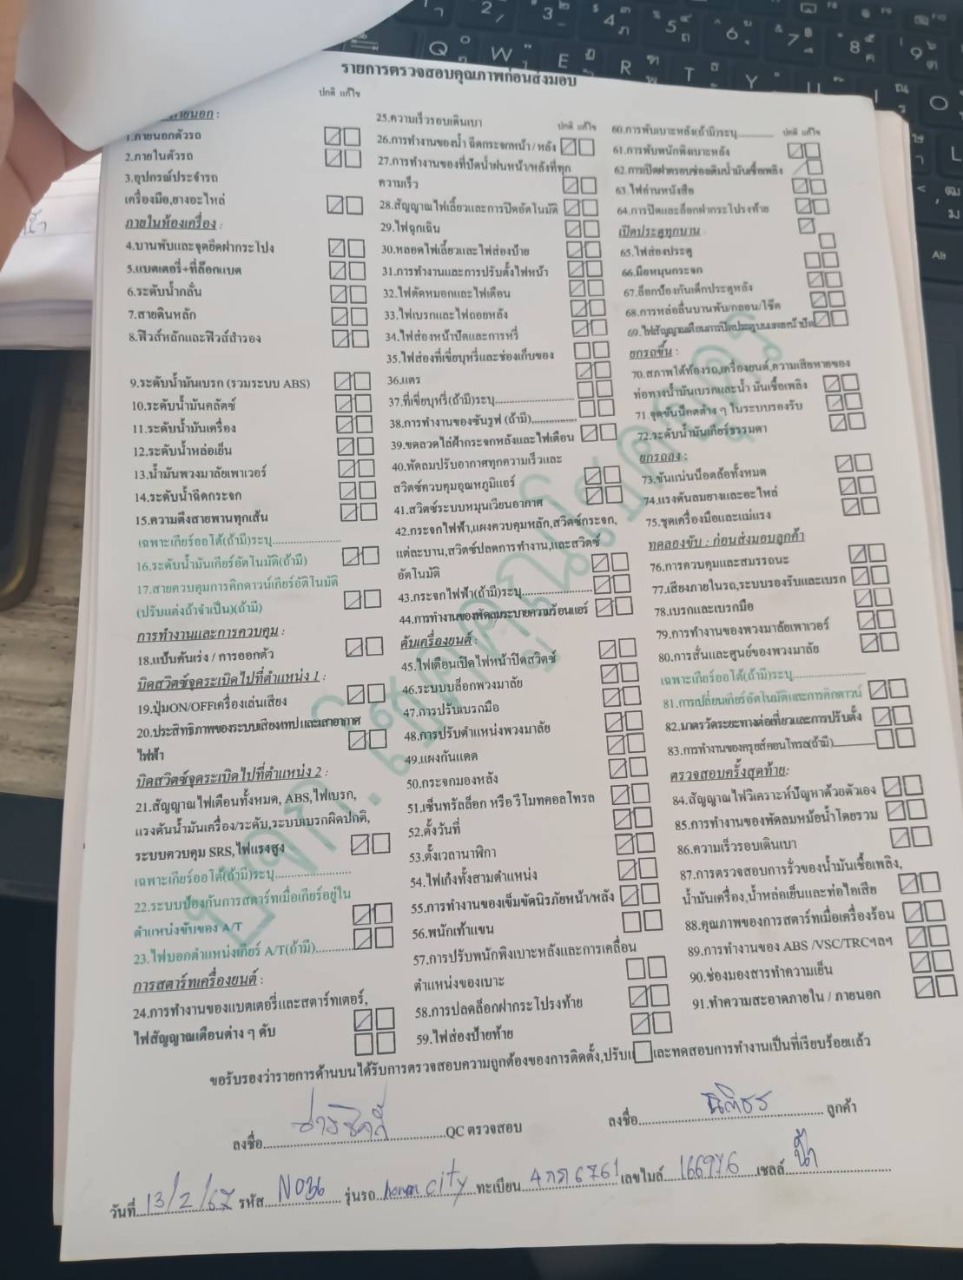 รายการตรวจสอบคุณภาพก่อนส่งมอบ
ปกติ แก้ไข
ภายนอก :
1.ภายนอกตัวรถ
2.ภายในตัวรถ
3.อุปกรณ์ประจำรถ
เครื่องมือ,ยางอะไหล่
ภายในห้องเครื่อง :
4.บานพับและจุดยึดฝากระโปง
5.แบตเตอรี่+ที่ล็อกแบต
6.ระดับน้ำกลั่น
7.สายดินหลัก
8.ฟิวส์หลักและฟิวส์สำรอง
9.ระดับน้ำมันเบรก (รวมระบบ ABS)
10.ระดับน้ำมันคลัตซ์
11.ระดับน้ำมันเครื่อง
12.ระดับน้ำหล่อเย็น
13.น้ำมันพวงมาลัยเพาเวอร์
14.ระดับน้ำฉีดกระจก
15.ความตึงสายพานทุกเส้น
เฉพาะเกียร์ออโต้(ถ้ามี)ระบุ
16.ระดับน้ำมันเกียร์อัตโนมัติ(ถ้ามี)
17.สายควบคุมการคิกดาวน์เกียร์อัติโนมัติ
(ปรับแต่งถ้าจำเป็น)(ถ้ามี)
การทำงานและการควบคุม :
18.แป้นคันเร่ง / การออกตัว
บิดสวิตซ์จุดระเบิดไปที่ตำแหน่ง 1 :
19.ปุ่มON/OFFเครื่องเล่นเสียง
20.ประสิทธิภาพของระบบเสียงเทปและเสาอากาศ
ไฟฟ้า
บิดสวิตซ์จุดระเบิดไปที่ตำแหน่ง 2 :
21.สัญญาณไฟเตือนทั้งหมด, ABS,ไฟเบรก,
แรงดันน้ำมันเครื่อง/ระดับ,ระบบเบรกผิดปกติ,
ระบบควบคุม SRS,ไฟแรงสูง
เฉพาะเกียร์ออโต้(ถ้ามี)ระบุ
22.ระบบป้องกันการสตาร์ทเมื่อเกียร์อยู่ใน
ตำแหน่งขับของ A/T
23.ไฟบอกตำแหน่งเกียร์ A/T(ถ้ามี)
การสตาร์ทเครื่องยนต์ :
24.การทำงานของแบตเตอรี่และสตาร์ทเตอร์,
ไฟสัญญาณเตือนต่าง ๆ ดับ
25.ความเร็วรอบเดินเบา
ปกติ แก้ไข
26.การทำงานของน้ำ ฉีดกระจกหน้า / หลัง
27.การทำงานของที่ปัดน้ำฝนหน้า/หลังที่ทุก
ความเร็ว
28.สัญญาณไฟเลี้ยวและการปิดอัตโนมัติ
29.ไฟฉุกเฉิน
30.หลอดไฟเลี้ยวและไฟส่องป้าย
31.การทำงานและการปรับตั้งไฟหน้า
32.ไฟตัดหมอกและไฟเตือน
33.ไฟเบรกและไฟถอยหลัง
34.ไฟส่องหน้าปัดและการหรี่
35.ไฟส่องที่เขี่ยบุหรี่และช่องเก็บของ
36.แตร
37.ที่เขี่ยบุหรี่(ถ้ามี)ระบุ
38.การทำงานของซันรูฟ (ถ้ามี)
39.ขดลวดไล่ฝ้ากระจกหลังและไฟเตือน
40.พัดลมปรับอากาศทุกความเร็วและ
สวิตซ์ควบคุมอุณหภูมิแอร์
41.สวิตซ์ระบบหมุนเวียนอากาศ
42.กระจกไฟฟ้า,แผงควบคุมหลัก,สวิตซ์กระจก,
แต่ละบาน,สวิตซ์ปลดการทำงาน,และสวิตซ์
อัตโนมัติ
43.กระจกไฟฟ้า(ถ้ามี)ระบุ
44.การทำงานของพัดลมระบายความร้อนแอร์
ดับเครื่องยนต์ :
45.ไฟเตือนเปิดไฟหน้าปิดสวิตซ์
46.ระบบบล็อกพวงมาลัย
47.การปรับเบรกมือ
48.การปรับตำแหน่งพวงมาลัย
49.แผงกันแดด
50.กระจกมองหลัง
51.เซ็นทรัลล็อก หรือ รีโมทคอลโทรล
52.ตั้งวันที่
53.ตั้งเวลานาฬิกา
54.ไฟเก๋งทั้งสามตำแหน่ง
55.การทำงานของเข็มขัดนิรภัยหน้า/หลัง
56.พนักเท้าแขน
57.การปรับพนักพิงเบาะหลังและการเคลื่อน
ตำแหน่งของเบาะ
58.การปลดล็อกฝากระโปรงท้าย
59.ไฟส่องป้ายท้าย
60.การพับเบาะหลัง(ถ้ามี)ระบุ
ปกติ แก้ไข
61.การพับพนักพิงเบาะหลัง
62.การเปิดฝาครอบช่องเติมน้ำมันเชื้อเพลิง
63.ไฟอ่านหนังสือ
64.การปิดและล็อกฝากระโปรงท้าย
เปิดประตูทุกบาน :
65.ไฟส่องประตู
66.มือหมุนกระจก
67.ล็อกป้องกันเด็กประตูหลัง
68.การหล่อลื่นบานพับ/กลอน/โช๊ค
69.ไฟสัญญาณเตือนการปิดประตูบนแผงหน้าปัด
ยกรถขึ้น :
70.สภาพใต้ท้องรถ,เครื่องยนต์,ความเสียหายของ
ท่อทางน้ำมันเบรกและน้ำ มันเชื้อเพลิง
71.จุดขันน๊อตต่าง ๆ ในระบบรองรับ
72.ระดับน้ำมันเกียร์ธรรมดา
ยกรถลง :
73.ขันแน่นน็อตล้อทั้งหมด
74.แรงดันลมยางและอะไหล่
75.ชุดเครื่องมือและแม่แรง
ทดลองขับ : ก่อนส่งมอบลูกค้า
76.การควบคุมและสมรรถนะ
77.เสียงภายในรถ,ระบบรองรับและเบรก
78.เบรกและเบรกมือ
79.การทำงานของพวงมาลัยเพาเวอร์
80.การสั่นและศูนย์ของพวงมาลัย
เฉพาะเกียร์ออโต้(ถ้ามี)ระบุ
81.การเปลี่ยนเกียร์อัตโนมัติและการคิกดาวน์
82.มาตรวัดระยะทางต่อเที่ยวและการปรับตั้ง
83.การทำงานของครุยส์คอนโทรล(ถ้ามี)
ตรวจสอบครั้งสุดท้าย:
84.สัญญาณไฟวิเคราะห์ปัญหาด้วยตัวเอง
85.การทำงานของพัดลมหม้อน้ำโดยรวม
86.ความเร็วรอบเดินเบา
87.การตรวจสอบการรั่วของน้ำมันเชื้อเพลิง,
น้ำมันเครื่อง,น้ำหล่อเย็นและท่อไอเสีย
88.คุณภาพของการสตาร์ทเมื่อเครื่องร้อน
89.การทำงานของ ABS /VSC/TRCฯลฯ
90.ช่องมองสารทำความเย็น
91.ทำความสะอาดภายใน / ภายนอก
ขอรับรองว่ารายการด้านบนได้รับการตรวจสอบความถูกต้องของการติดตั้ง,ปรับแ และทดสอบการทำงานเป็นที่เรียบร้อยแล้ว
ลงชื่อ QC ตรวจสอบ
ลงชื่อ นิติธร ลูกค้า
วันที่ 13/2/67 รหัส รุ่นรถ honda city ทะเบียน 4กภ 6761 เลขไมล์ 166976 เซลล์ น้ำ